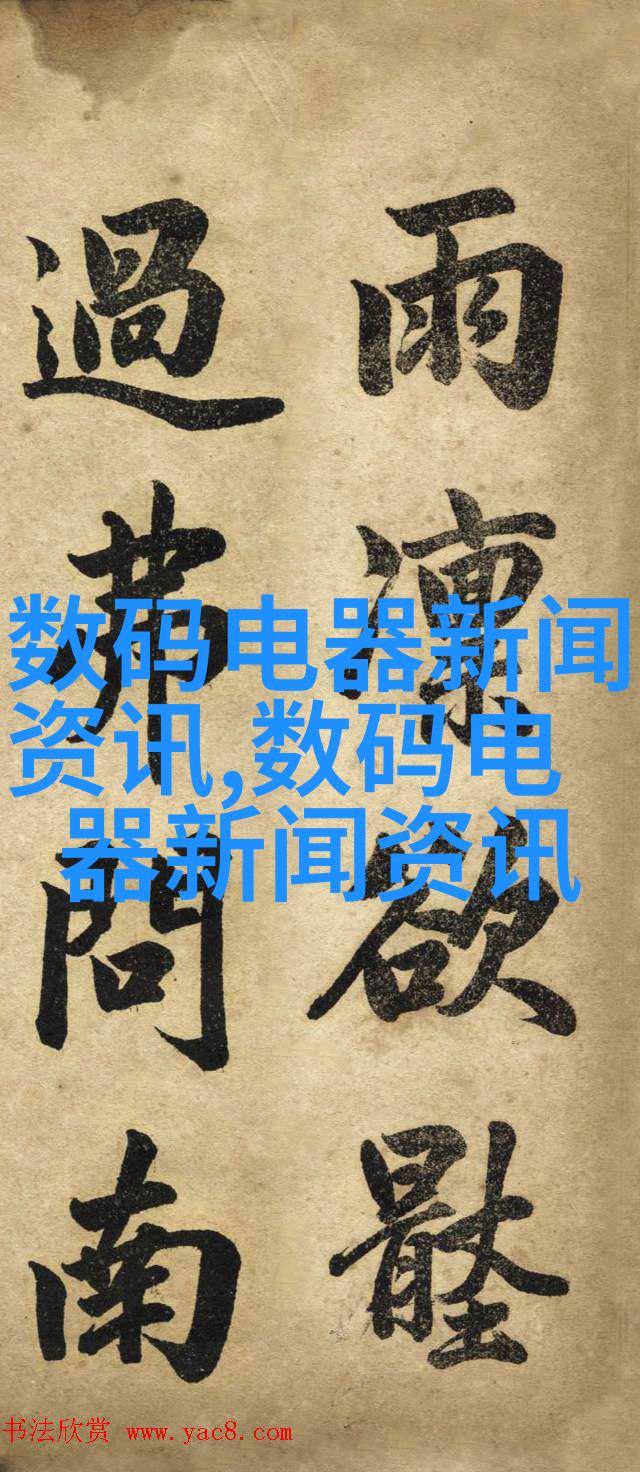 雨
欲
過弗問南
数码电器新闻
资讯,数码电
器新闻资讯
书法欣赏 www.yac8.com